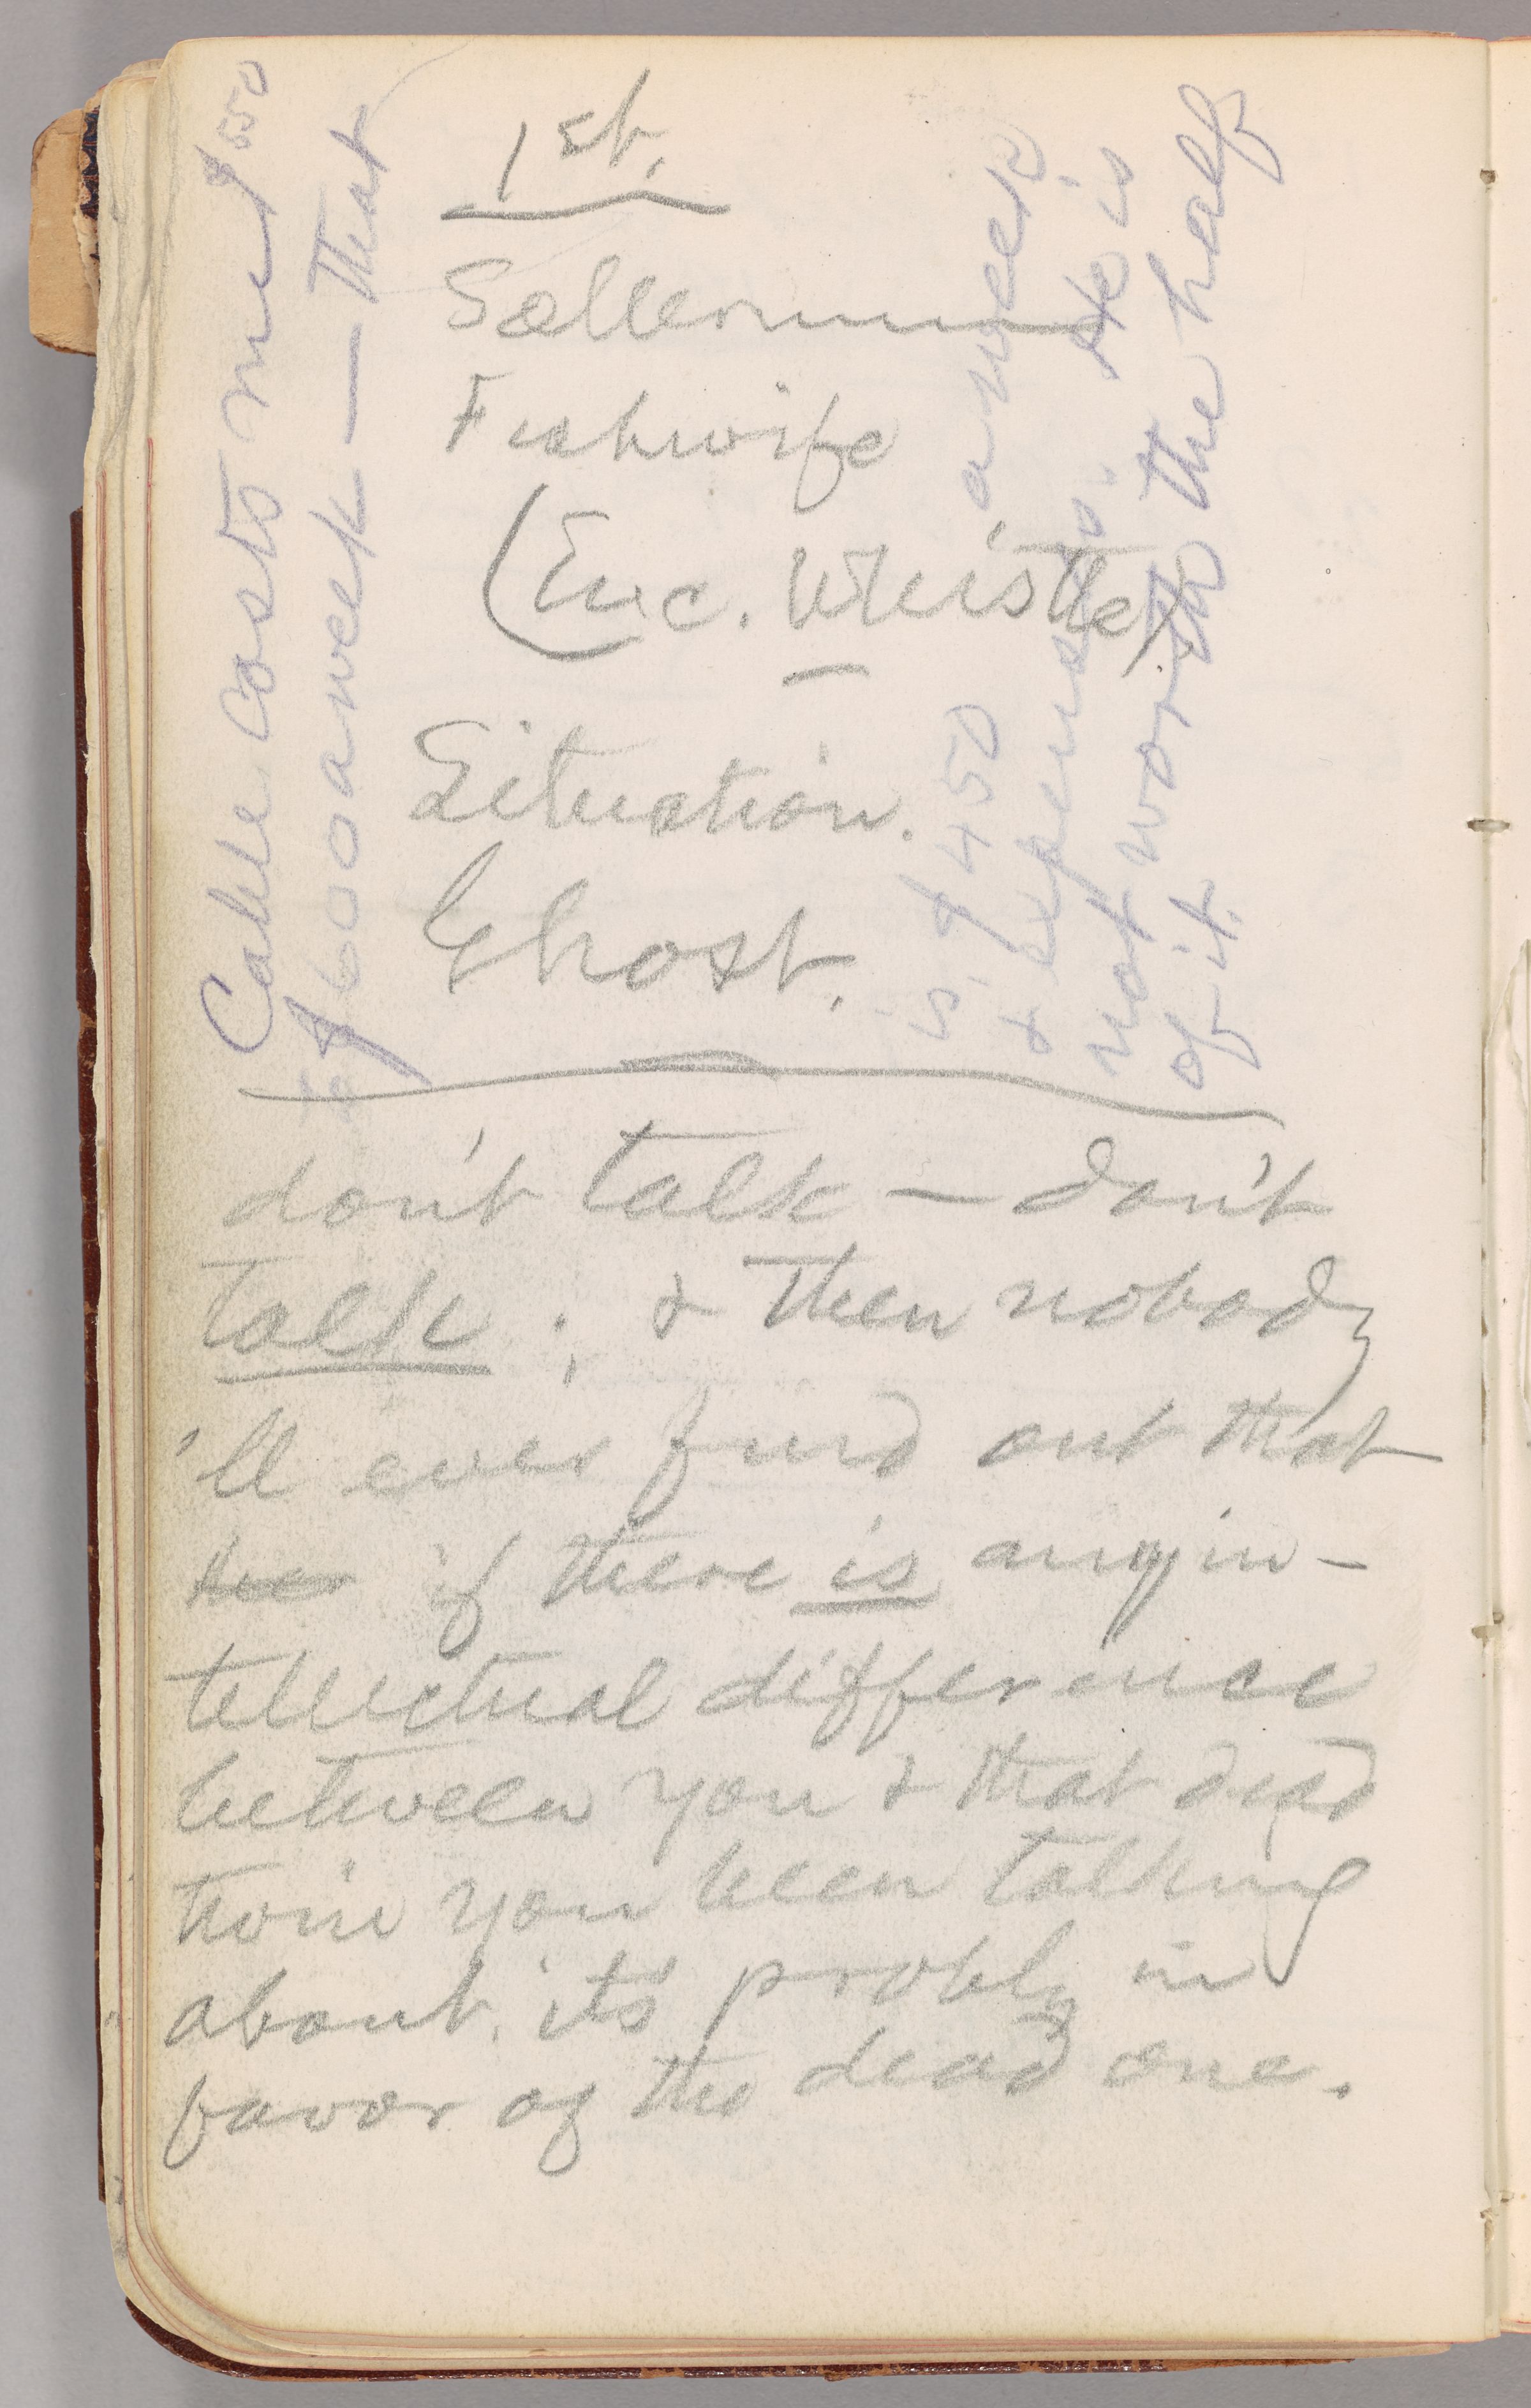 1st.
Sellermun
Fishwife
(Enc. Whistle)
Situation.
Ghost.
don't talk — don't
talk ; & then nobody
'll ever find out that
if there is any in-
tellectual difference
between you & that dead
twin you been talking
about. it's probly in
favor of the dead one.
Cable costs me $550
to $600 a week — That
is $450 a week
& expenses. He is
not worth the half
of it.